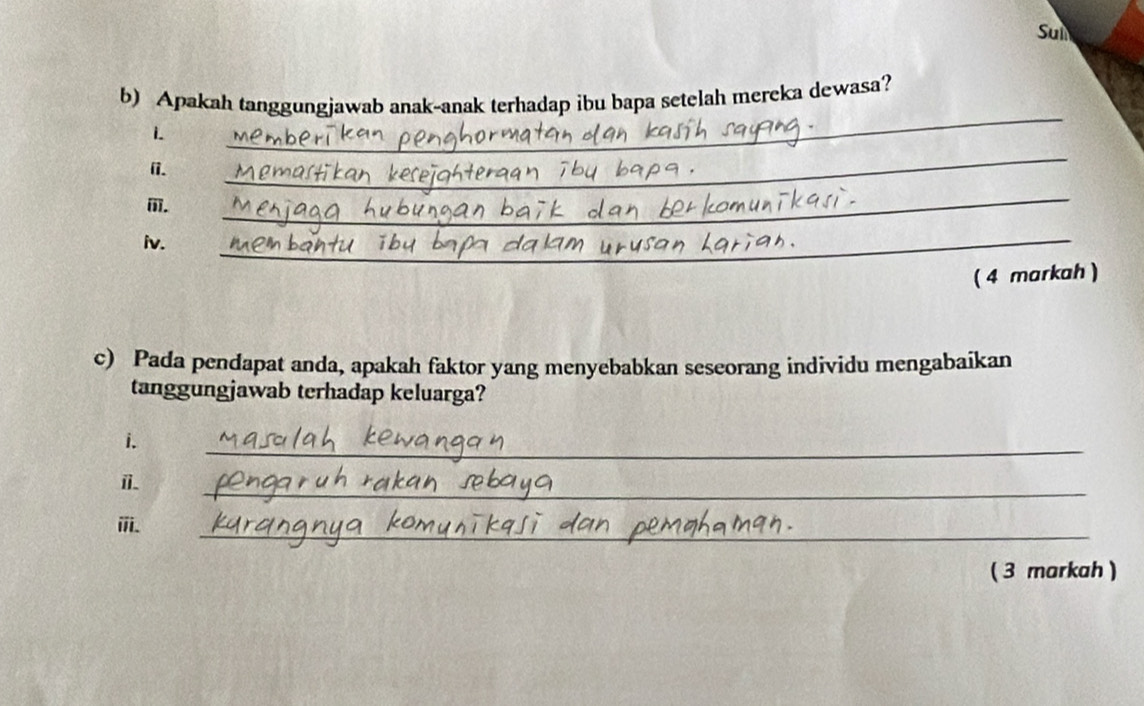 b) Apakah tanggungjawab anak-anak terhadap ibu bapa setelah mereka dewasa?
i. memberikan penghormatan dan kasih sayang.
ii. Memastikan kesejahteraan ibu bapa.
iii. Menjaga hubungan baik dan berkomunikasi.
iv. membantu ibu bapa dalam urusan harian.
( 4 markah )
c) Pada pendapat anda, apakah faktor yang menyebabkan seseorang individu mengabaikan
tanggungjawab terhadap keluarga?
i. Masalah kewangan
ii. pengaruh rakan sebaya
iii. kurangnya komunikasi dan pemahaman.
( 3 markah )